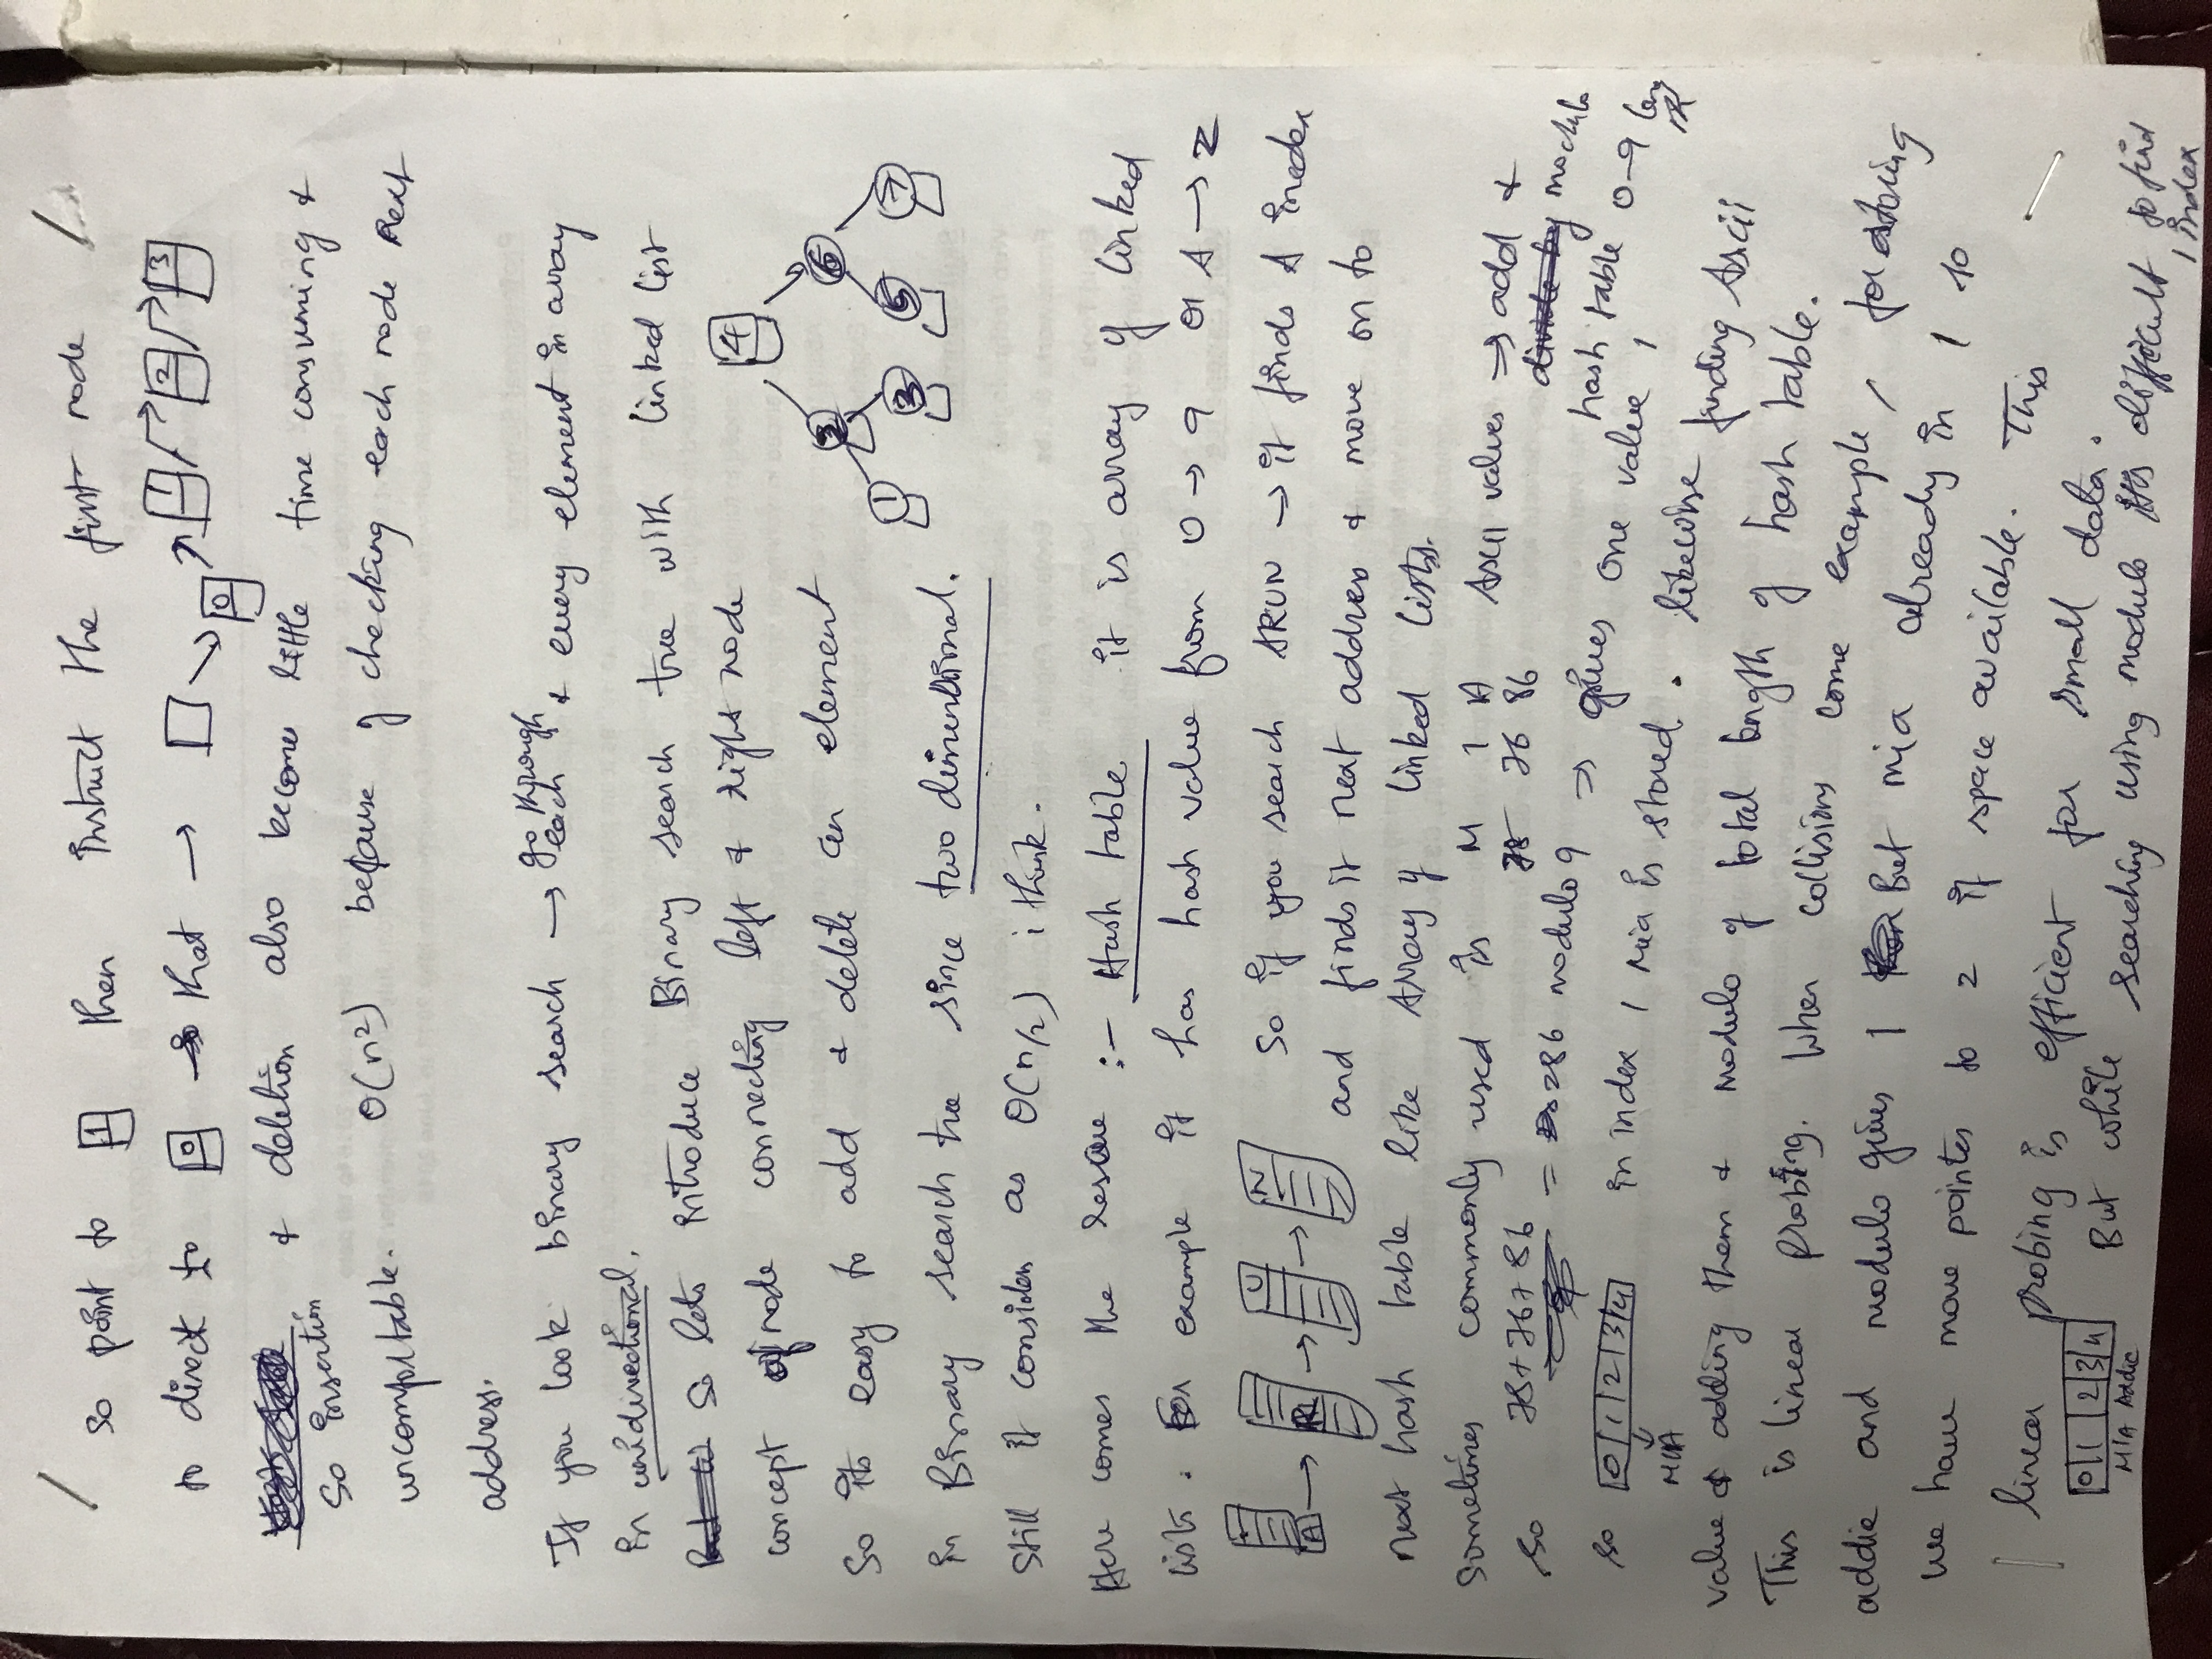 So point to 1 then instruct the first node
to direct to 0 that → 0 1 2 3
So insertion & deletion also become little time consuming &
uncomfortable. O(n²) because of checking each node next
address.
If you look binary search → go through each & every element in array
in unidirectional.
So lets introduce Binary search tree with linked list
concept of node connecting left & right node
4
2 6
1 3 5 7
So its easy to add & delete an element
in Binary search tree since two dimensional.
Still it consider as O(n/2) i think.
Here comes the rescue :- Hash table it is array of linked
lists. For example it has hash value from 0 → 9 or A → Z
A → R → U → N
So if you search ARUN → it finds A inedex
and finds it next address & move on to
next hash table like Array of linked lists.
Sometimes commonly used is M I A Ascii values → add &
78 76 86
modulo
hash table 0-9
so 78+76+86 = 286 modulo 9 → gives one value 1
so 0 1 2 3 4 in index 1 Mia is stored. likewise finding Ascii
MIA
value & adding them & modulo of total length of hash table.
This is linear probing. When collisions come example, for storing
addie and modulo gives 1 But mia already in 1 so
we have move pointer to 2 if space available. This
linear probing is efficient for small data.
0 1 2 3 4
MIA Addie
But while searching using modulo its difficult to find
1 index